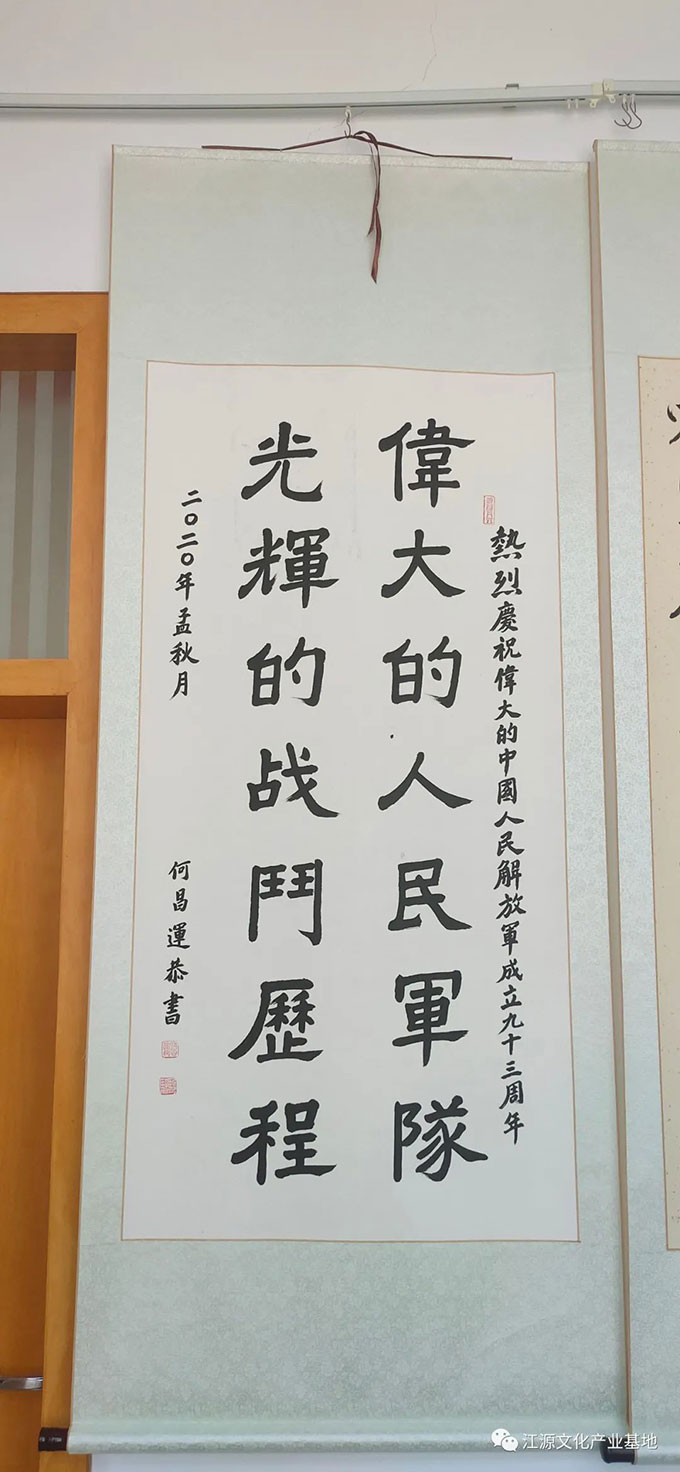 熱烈慶祝偉大的中國人民解放軍成立九十三周年
偉大的人民軍隊
光輝的战鬥歷程
二〇二〇年孟秋月
何昌運恭書
江源文化产业基地